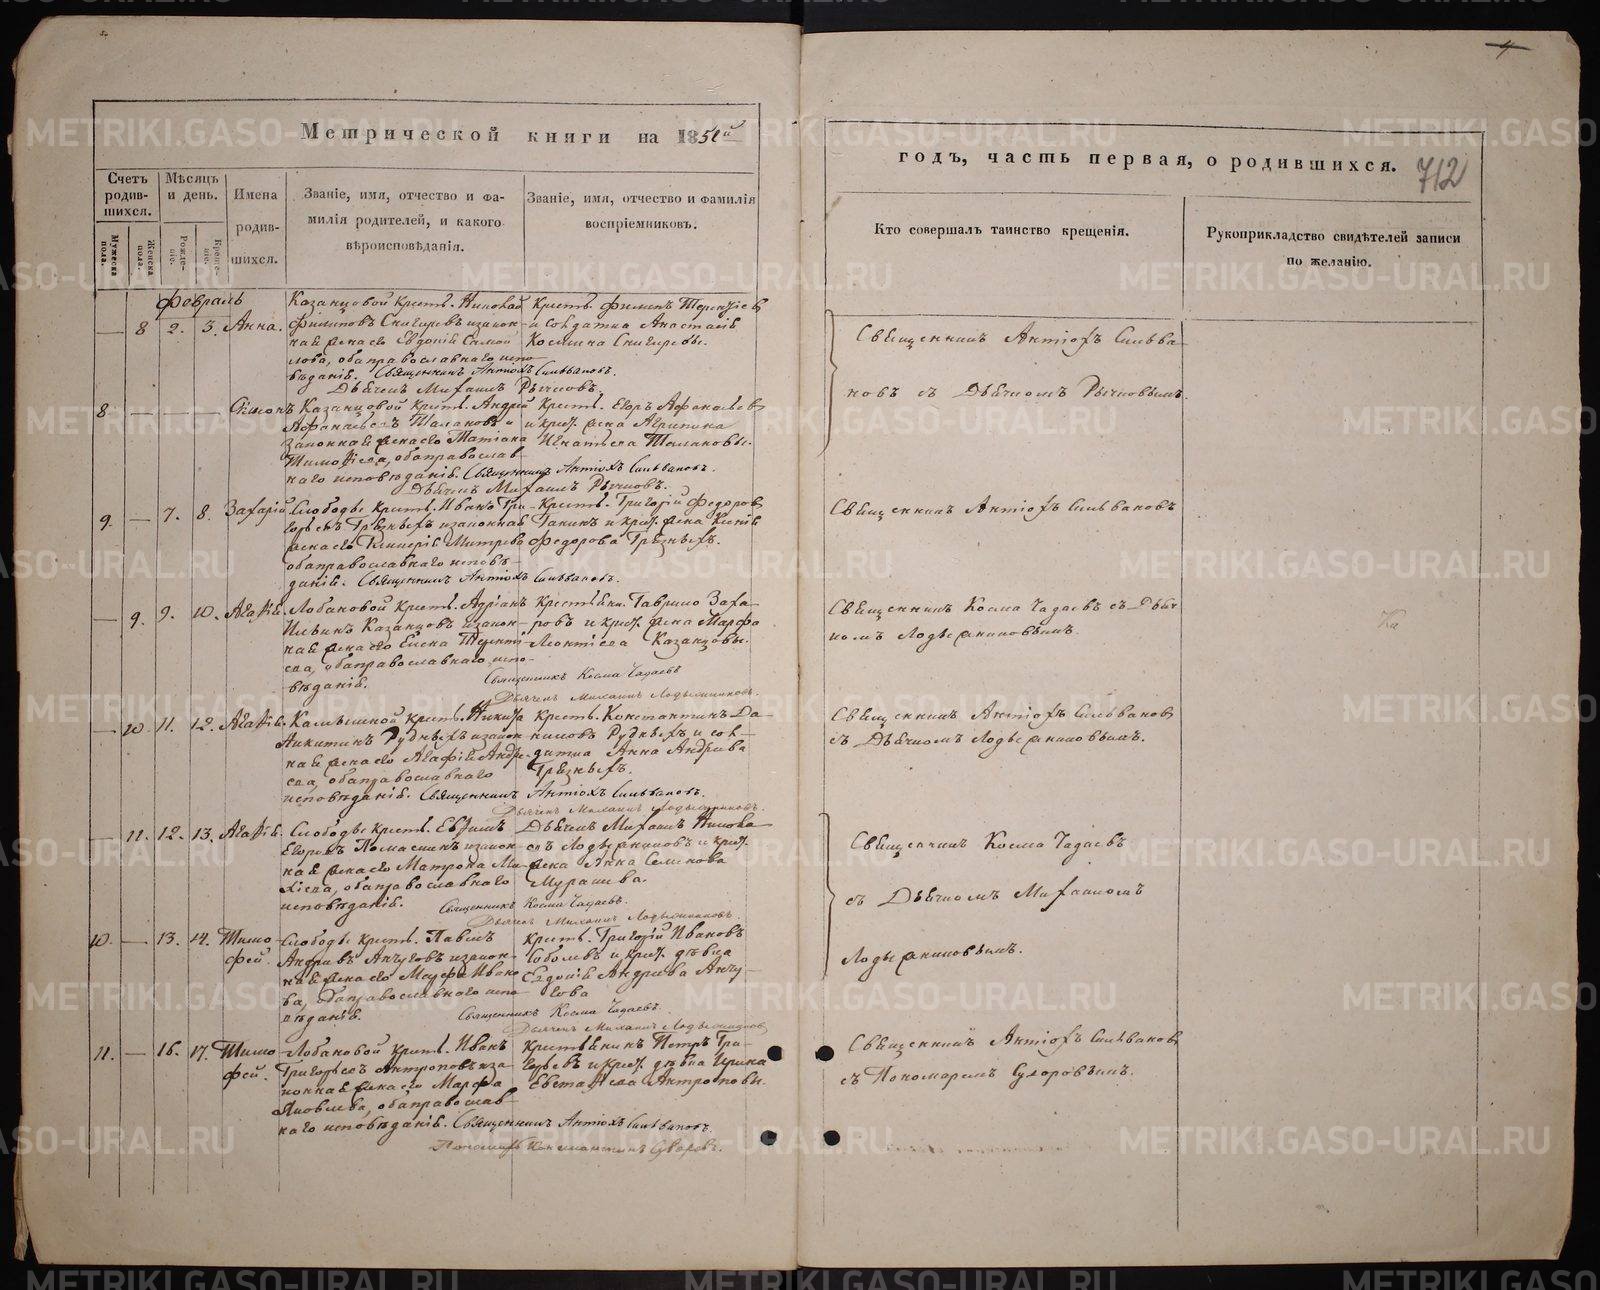 Метрической книги на 185 й
годъ, часть первая, о родившихся.
712
4
Счетъ родив-шихся.
Мужеска пола.
Женска пола.
Мѣсяцъ и день.
Рожде-нія.
Креще-нія.
Имена родив-шихся.
Званіе, имя, отчество и фа-
милія родителей, и какого
вѣроисповѣданія.
Званіе, имя, отчество и фамилія
воспріемниковъ.
Кто совершалъ таинство крещенія.
Рукоприкладство свидѣтелей записи
по желанію.
Февраль
8 2. 3. Анна.
Казанцовой крест. Николай
Филиповъ Снигиревъ и закон-
ная жена его Евдокія Самой
лова, оба православнаго испо-
вѣданія. Священникъ Антіохъ Сильвановъ.
Дьячекъ Михаилъ Рычковъ.
Крест. Филипъ Терентіевъ
и солдатка Анастасія
Космина Снигиревы.
Священникъ Антіохъ Сильва-
новъ съ Дьячкомъ Рычковымъ.
8 Сімонъ
Казанцовой крест. Андрей
Афанасьевъ Талановъ и
законная жена его Татіана
Тимофіева, оба православ-
наго исповѣданія. Священникъ Антіохъ Сильвановъ.
Дьячекъ Михаилъ Рычковъ.
Крест. Егоръ Афанасьевъ
и крест. жена Агрипина
Игнатьева Талановы.
9. 7. 8. Захарій
Слободы крест. Иванъ Гри-
горьевъ Грязныхъ и законная
жена его Гликерія Митрева
оба православнаго исповѣ-
данія. Священникъ Антіохъ Сильвановъ.
Крест. Григорій Федоровъ
и крест. жена Ксенія
Федорова Грязныхъ.
Священникъ Антіохъ Сильвановъ
9. 9. 10. Агафія.
Лобановой крест. Адріанъ
Ильинъ Казанцовъ и закон-
ная жена его Елена Теренті-
ева, оба православнаго испо-
вѣданія.
Священникъ Косма Чадаевъ
Дьячекъ Михаилъ Лодыжниковъ.
Крестьянинъ Гаврило Заха-
ровъ и крест. жена Марфа
Леонтіева Казанцовы.
Священникъ Косма Чадаевъ съ Дьяч-
комъ Лодыжниковымъ.
10 11. 12. Агафія.
Камышной крест. Никита
Никитинъ Рудныхъ и закон-
ная жена его Агафія Андре-
ева, оба православнаго
исповѣданія. Священникъ Антіохъ Сильвановъ.
Дьячекъ Михаилъ Лодыжниковъ.
Крест. Константинъ Да-
ниловъ Рудныхъ и сол-
датка Анна Андреева
Грязныхъ.
Священникъ Антіохъ Сильвановъ
съ Дьячкомъ Лодыжниковымъ.
11. 12. 13. Агафія.
Слободы крест. Ефимъ
Егоровъ и закон-
ная жена его Матрона Ми-
хіева, оба православнаго
исповѣданія.
Священникъ Косма Чадаевъ.
Дьячекъ Михаилъ Лодыжниковъ.
Дьячекъ Михаилъ Никола-
евъ Лодыжниковъ и крест.
жена Анна Семенова
Мурашева.
Священникъ Косма Чадаевъ
съ Дьячкомъ Михаиломъ
Лодыжниковымъ.
10. 13. 14. Тимо-
фей.
Слободы крест. Павелъ
Андреевъ Анчуговъ и закон-
ная жена его Марфа Ивано-
ва, оба православнаго испо-
вѣданія.
Священникъ Косма Чадаевъ.
Дьячекъ Михаилъ Лодыжниковъ
Крест. Григорій Ивановъ
Соболевъ и крест. дѣвка
Евдокія Андреева Анчу-
гова
11. 16. 17. Тимо-
фей.
Лобановой крест. Иванъ
Григорьевъ Антроповъ и за-
конная жена его Марфа
Яковлева, оба православ-
наго исповѣданія. Священникъ Антіохъ Сильвановъ.
Пономарь Константинъ Суворовъ.
Крестьянинъ Петръ Гри-
горьевъ и крест. дѣвка Ирина
Евстафіева Антроповы.
Священникъ Антіохъ Сильвановъ
съ Пономаремъ Суворовымъ.
METRIKI.GASO-URAL.RU